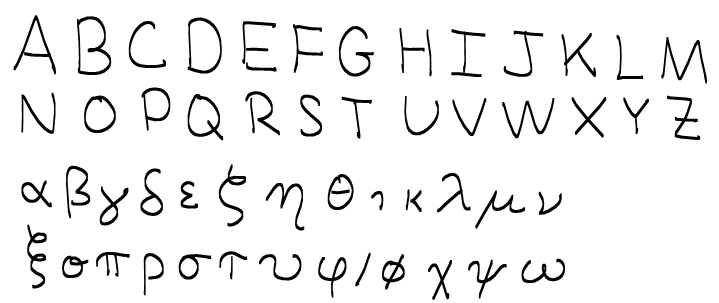 A B C D E F G H I J K L M
N O P Q R S T U V W X Y Z
α β γ δ ε ζ η θ ι κ λ μ ν
ξ ο π ρ σ τ υ φ/ϕ χ ψ ω